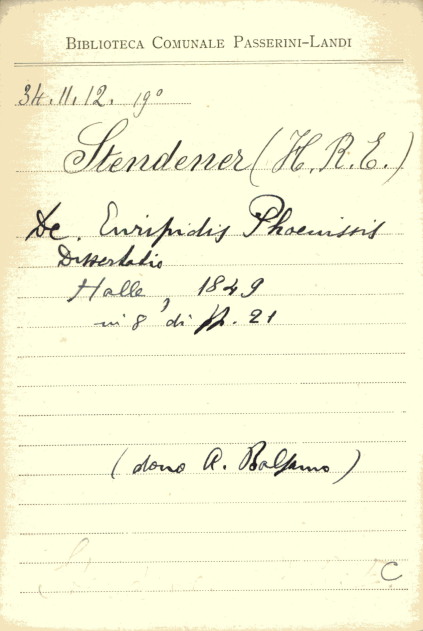 BIBLIOTECA COMUNALE PASSERINI-LANDI
34.11.12. 19°
Stendener (H. R. E.)
De Euripidis Phoenissis
Dissertatio
Halle, 1849
in 8° di pp. 21
(dono A. Balsamo)
C